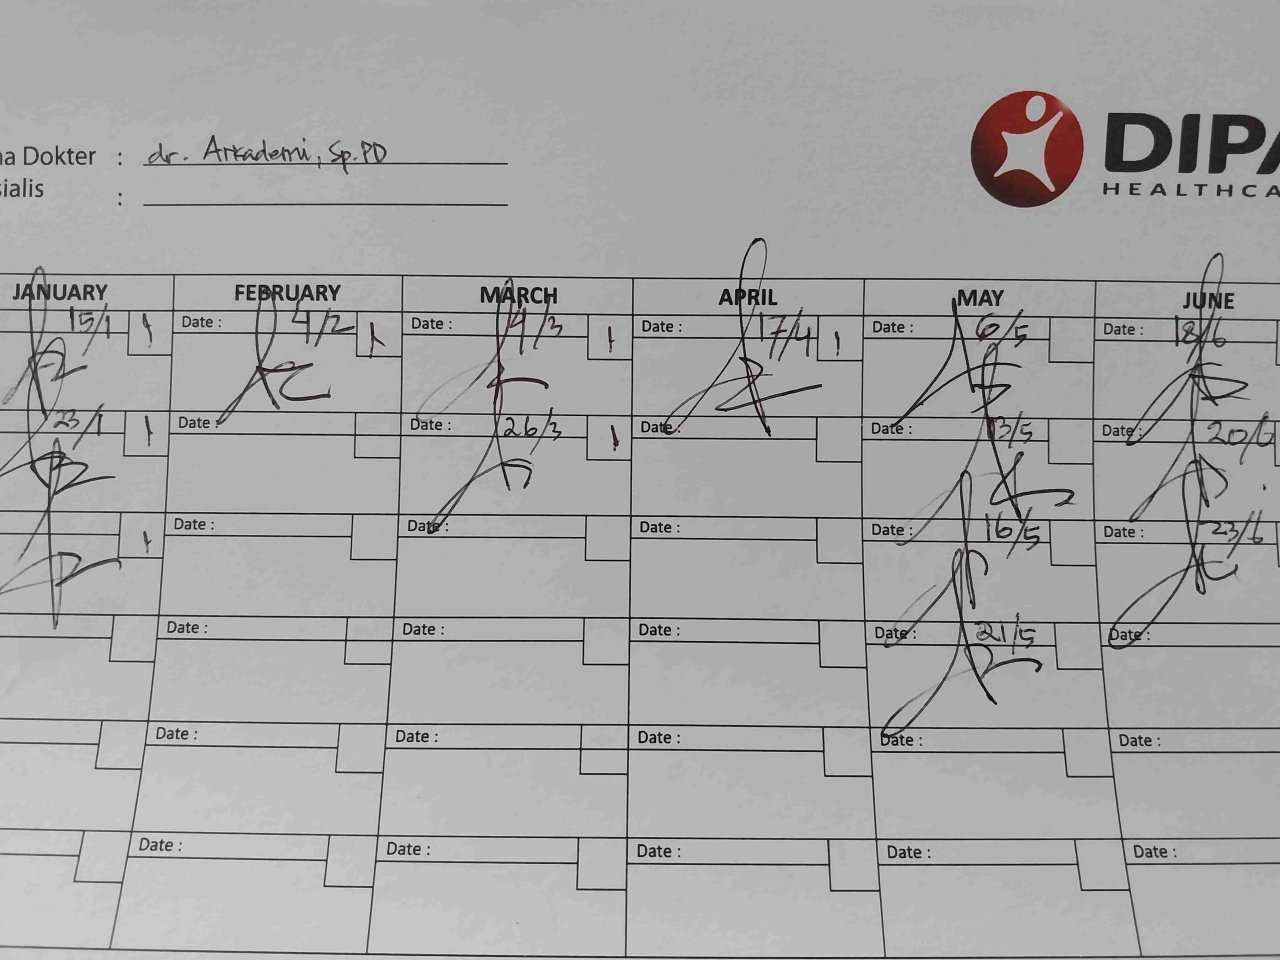 a Dokter : dr. Arkademi, Sp.PD
ialis :
DIPA
HEALTHCA
JANUARY FEBRUARY MARCH APRIL MAY JUNE
15/1 1 Date : 4/2 1 Date : 4/3 1 Date : 17/4 1 Date : 6/5 Date : 18/6
23/1 1 Date : Date : 26/3 1 Date : Date : 13/5 Date : 20/6
1 Date : Date : Date : Date : 16/5 Date : 23/6
Date : Date : Date : Date : 21/5 Date :
Date : Date : Date : Date : Date :
Date : Date : Date : Date : Date :